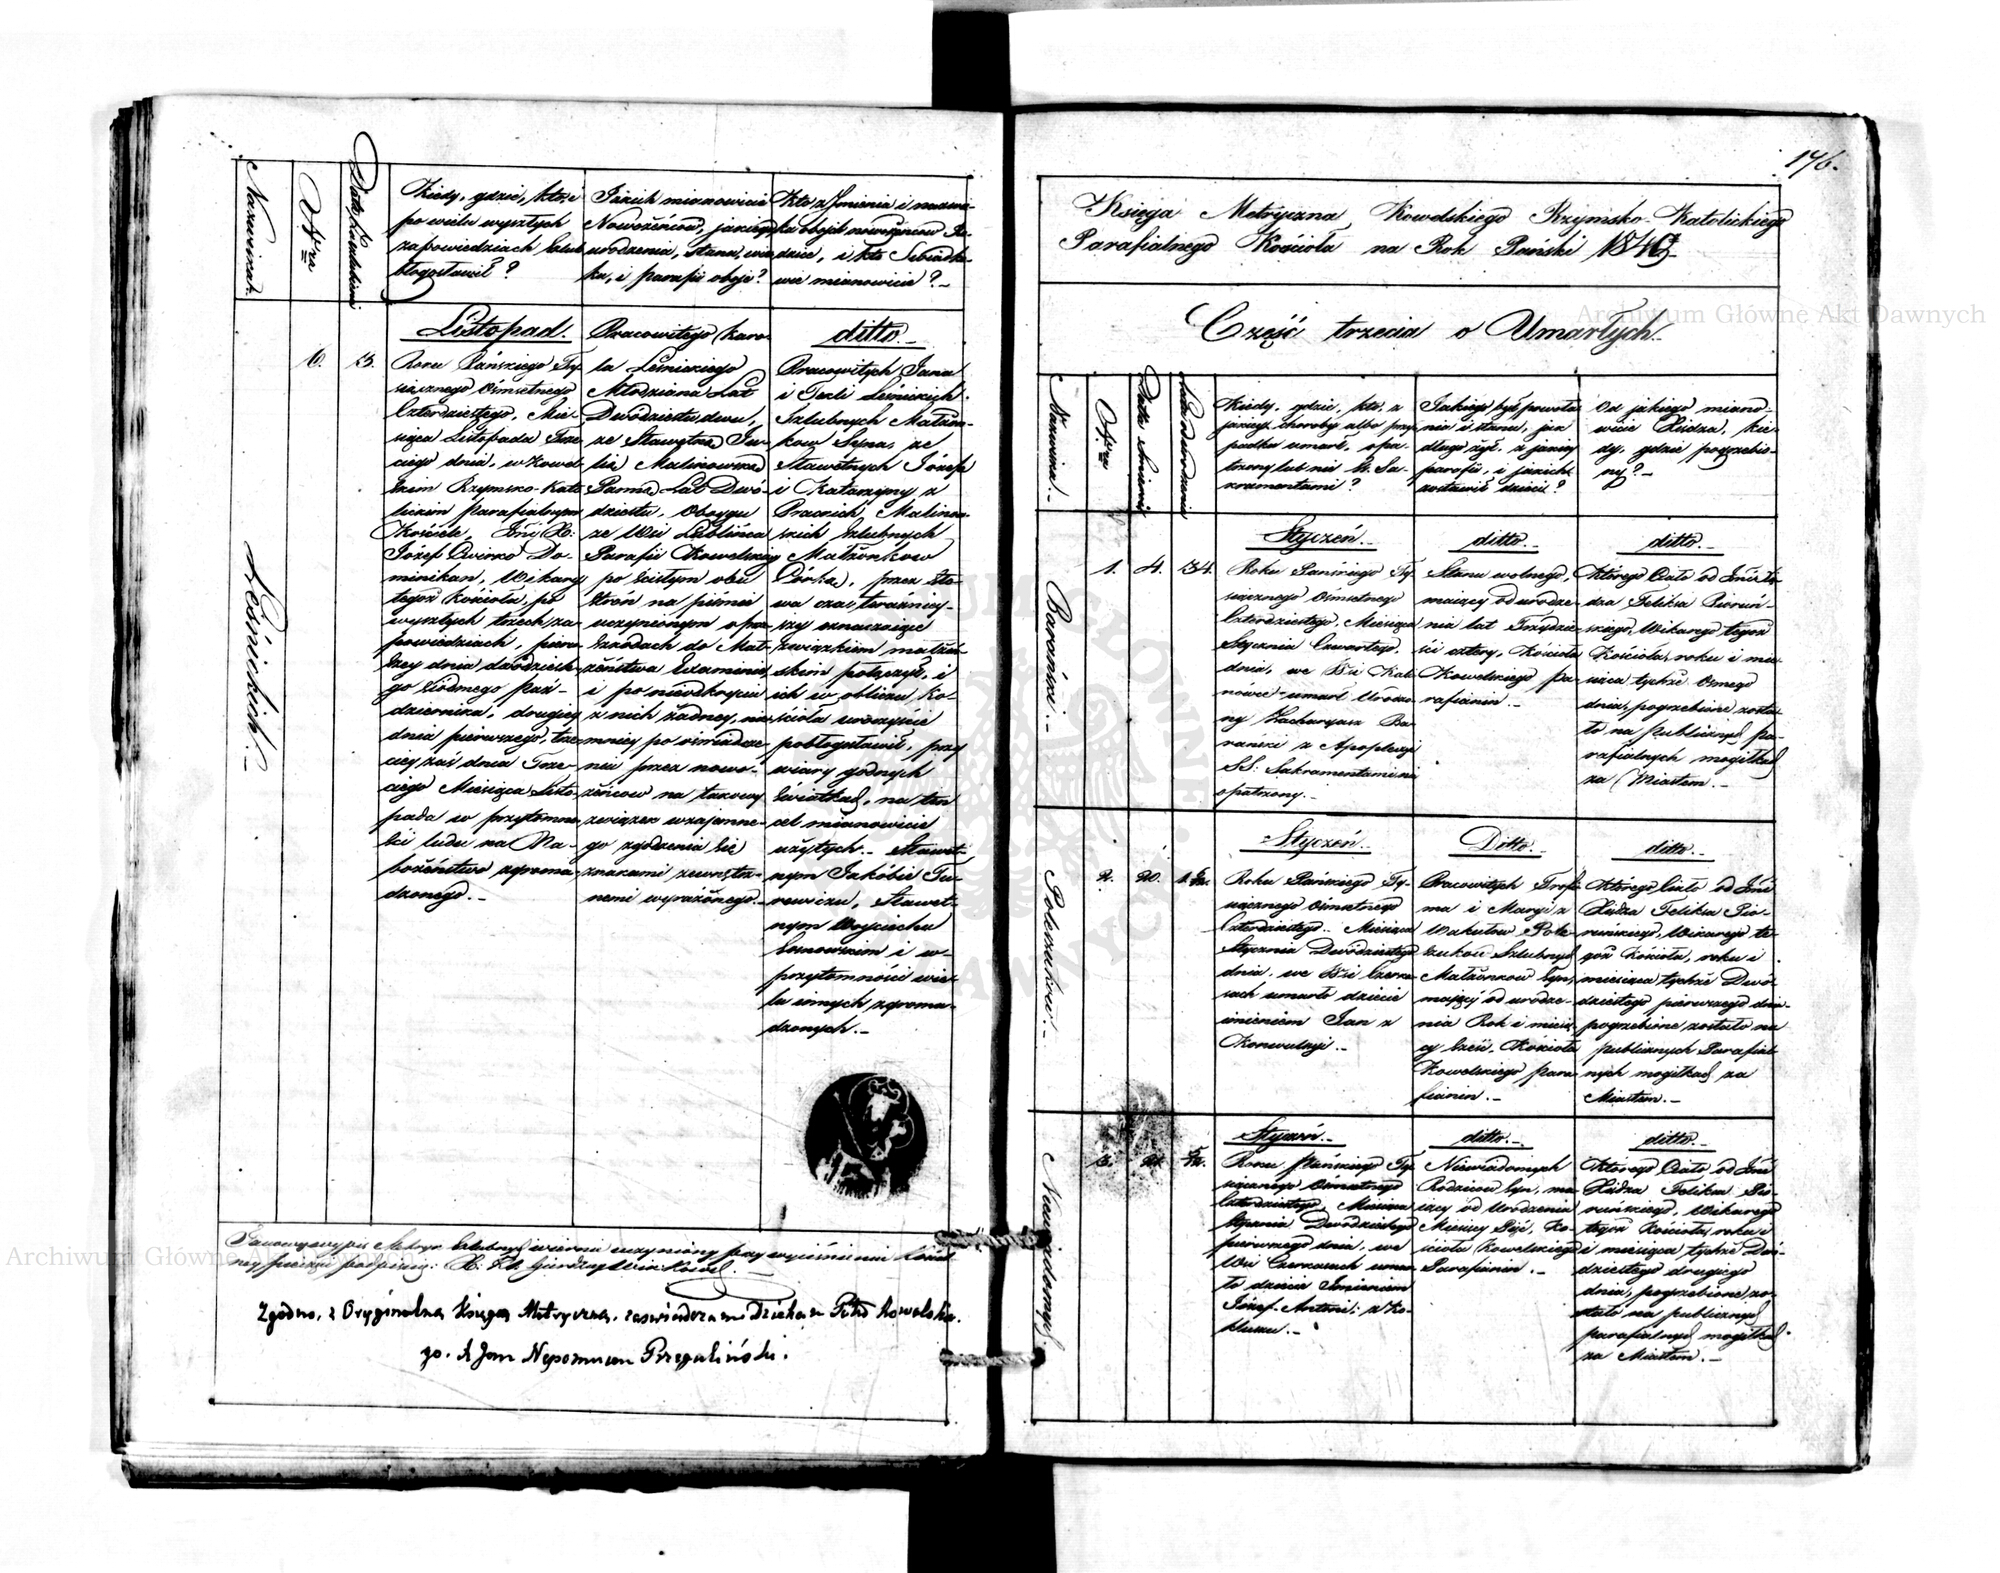 Nazwiska.
Nra
Data kalend.
Kiedy, gdzie, kto, i
po wielu wyszłych
zapowiedziach ślub
błogosławił?
Jakich mianowicie
Nowożeńców, jakiego
urodzenia, stanu, wie-
ku, i parafii oboje?
Kto z Imienia i nazwi-
ska obojch nowożeńców Ro-
dzice, i kto Świadko-
wie mianowicie?
Leśnickich.
6.
3.
Listopad.
Roku Pańskiego Ty-
siącznego Ośmsetnego
Czterdziestego, Mie-
siąca Listopada Trze-
ciego dnia, w Kowel-
skim Rzymsko-Kato-
lickim parafialnym
Kościele, Jmć X:
Józef Dominikan, Wikary
tegoż Kościoła, po
wyszłych trzech za-
powiedziach, pierw-
szey dnia dwódzieste-
go siódmego Paź-
dziernika, drugiey
dnia pierwszego, trze-
ciey zaś dnia Trze-
ciego Miesiąca Listo-
pada w przytomno-
ści ludu na Na-
bożeństwo zgroma-
dzonego.
Pracowitego Karo-
la Leśnickiego
Młodziana Lat
Dwódziestu dwu,
ze Sławetną Ju-
lią Malinowską
Panną Lat Dwó-
dziestu, Oboygu
ze Wsi Lublińca
Parafii Kowelskiey
po ścisłym obu
Stron na piśmie
uczynionym o prze-
szkodach do Mał-
żeństwa Examinie,
i po nieodkryciu
z nich żadney, nie
mniey po oświadcze-
niu przez nowo-
żeńców na takowy
związek wzajemne-
go zgodzenia się
znakami zewnętrz-
nemi wyrażonego.
ditto.
Pracowitych Jana
i Tekli Leśnickich
Szlubnych Małżon-
ków Syna, ze
Sławetnych Józefa
i Katarzyny z
Malinow-
skich Szlubnych
Małżonków
Córką, przez sło-
wa czas teraźniey-
szy oznaczaiące
związkiem małżeń-
skim połączył, i
ich w obliczu Ko-
ścioła uroczyście
pobłogosławił, przy
wiary godnych
świadkach, na ten
cel mianowicie
użytych. Sławet-
nym Jakóbie Ju-
rewiczu, Sławet-
nym Woyciechu
Sosnowskim i w
przytomności wie-
lu innych zgroma-
dzonych.
Takowy wypis Metryk Szlubnych wiernie uczyniony przy wyciśnieniu Kościel-
ney pieczęci podpisuię: X:
Zgodno, z Oryginalną Księgą Metryczną, zaświadczam Dziekan Pttu Kowelskie-
go. X Jan Nepomucen Przegaliński.
176.
Księga Metryczna Kowelskiego Rzymsko-Katolickiego
Parafialnego Kościoła na Rok Pański 1840.
Część trzecia o Umarłych.
Nazwiska.
Nra
Data śmierci
Lata urodzenia
Kiedy, gdzie, kto, z
jakiey choroby albo przy-
padku umarł, opa-
trzony lub nie Ś. Sa-
kramentami?
Jakiego był powoła-
nia i stanu, jak
długo żył, z jakiey
parafii, i jakich
zostawił dzieci?
Od jakiego miano-
wicie Xiędza, kie-
dy, gdzie pogrzebio-
ny?
Barański.
1.
4.
34.
Styczeń.
Roku Pańskiego Ty-
siącznego Ośmsetnego
Czterdziestego, Miesiąca
Stycznia Czwartego,
dnia, we Wsi Kal-
nówce umarł Urodzo-
ny Zacharyasz Ba-
rański z Apoplexyi
SS: Sakramentami nie
opatrzony.
ditto.
Stanu wolnego,
maiący od urodze-
nia lat Trzydzie-
ści cztery, Kościoła
Kowelskiego pa-
rafianin.
ditto.
Którego Ciało od Jmć Xię-
dza Felixa Pioruń-
skiego, Wikarego tegoż
Kościoła, roku i mie-
siąca tychże Osmego
dnia, pogrzebione zosta-
ło na publicznych pa-
rafialnych mogiłkach
za Miastem.
Poleszuków.
2.
20.
1 6/12.
Styczeń.
Roku Pańskiego Ty-
siącznego Ośmsetnego
Czterdziestego, Miesiąca
Stycznia Dwódziestego
dnia, we Wsi Czerka-
sach umarło dziecie
imieniem Jan z
Konwulsyi.
Ditto.
Pracowitych Trofi-
ma i Maryi z
Wakułów Pole-
szuków Szlubnych
Małżonków Syn,
maiący od urodze-
nia Rok i miesię-
cy sześć, Kościoła
Kowelskiego para-
fianin.
ditto.
Którego Ciało od Jmć
Xiędza Felixa Pio-
ruńskiego, Wikarego te-
goż Kościoła, roku i
miesiąca tychże Dwó-
dziestego pierwszego dnia
pogrzebione zostało na
publicznych Parafial-
nych mogiłkach za
Miastem.
Niewiadomych.
3.
21.
5/12.
Styczeń.
Roku Pańskiego Ty-
siącznego Ośmsetnego
Czterdziestego, Miesiąca
Stycznia Dwódziestego
pierwszego dnia, we
Wsi Czerkasach umar-
ło dziecie Imieniem
Józef-Antoni, z Ko-
kluszu.
ditto.
Niewiadomych
Rodziców Syn, ma-
iący od Urodzenia
Miesięcy Pięć, Ko-
ścioła Kowelskiego
Parafianin.
ditto.
Którego Ciało od Jmć
Xiędza Felixa Pio-
ruńskiego, Wikarego
tegoż Kościoła, roku
i miesiąca tychże Dwó-
dziestego drugiego
dnia, pogrzebione zo-
stało na publicznych
parafialnych mogiłkach
za Miastem.
Archiwum Główne Akt Dawnych
Archiwum Główne Akt Dawnych